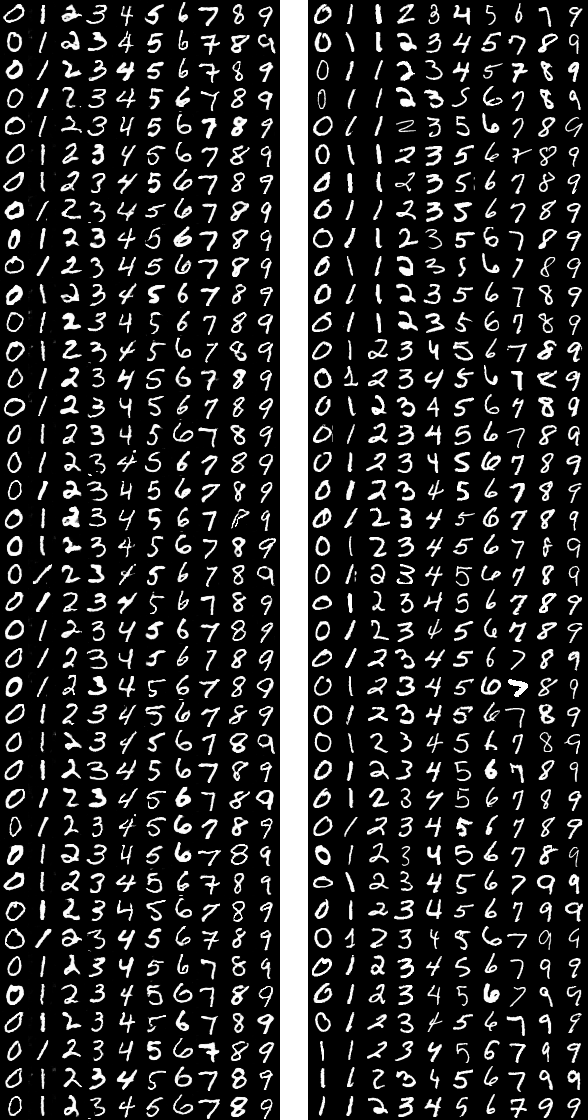 0 1 2 3 4 5 6 7 8 9
0 1 2 3 4 5 6 7 8 9
0 1 2 3 4 5 6 7 8 9
0 1 2 3 4 5 6 7 8 9
0 1 2 3 4 5 6 7 8 9
0 1 2 3 4 5 6 7 8 9
0 1 2 3 4 5 6 7 8 9
0 1 2 3 4 5 6 7 8 9
0 1 2 3 4 5 6 7 8 9
0 1 2 3 4 5 6 7 8 9
0 1 2 3 4 5 6 7 8 9
0 1 2 3 4 5 6 7 8 9
0 1 2 3 4 5 6 7 8 9
0 1 2 3 4 5 6 7 8 9
0 1 2 3 4 5 6 7 8 9
0 1 2 3 4 5 6 7 8 9
0 1 2 3 4 5 6 7 8 9
0 1 2 3 4 5 6 7 8 9
0 1 2 3 4 5 6 7 8 9
0 1 2 3 4 5 6 7 8 9
0 1 2 3 4 5 6 7 8 9
0 1 2 3 4 5 6 7 8 9
0 1 2 3 4 5 6 7 8 9
0 1 2 3 4 5 6 7 8 9
0 1 2 3 4 5 6 7 8 9
0 1 2 3 4 5 6 7 8 9
0 1 2 3 4 5 6 7 8 9
0 1 2 3 4 5 6 7 8 9
0 1 2 3 4 5 6 7 8 9
0 1 2 3 4 5 6 7 8 9
0 1 2 3 4 5 6 7 8 9
0 1 2 3 4 5 6 7 8 9
0 1 2 3 4 5 6 7 8 9
0 1 2 3 4 5 6 7 8 9
0 1 2 3 4 5 6 7 8 9
0 1 2 3 4 5 6 7 8 9
0 1 2 3 4 5 6 7 8 9
0 1 2 3 4 5 6 7 8 9
0 1 2 3 4 5 6 7 8 9
0 1 2 3 4 5 6 7 8 9
0 1 1 2 3 4 5 6 7 9
0 1 1 2 3 4 5 7 8 9
0 1 1 2 3 4 5 7 8 9
0 1 1 2 3 5 6 7 8 9
0 1 1 2 3 5 6 7 8 9
0 1 1 2 3 5 6 7 8 9
0 1 1 2 3 5 6 7 8 9
0 1 1 2 3 5 6 7 8 9
0 1 1 2 3 5 6 7 8 9
0 1 1 2 3 5 6 7 8 9
0 1 1 2 3 5 6 7 8 9
0 1 1 2 3 5 6 7 8 9
0 1 2 3 4 5 6 7 8 9
0 1 2 3 4 5 6 7 8 9
0 1 2 3 4 5 6 7 8 9
0 1 2 3 4 5 6 7 8 9
0 1 2 3 4 5 6 7 8 9
0 1 2 3 4 5 6 7 8 9
0 1 2 3 4 5 6 7 8 9
0 1 2 3 4 5 6 7 8 9
0 1 2 3 4 5 6 7 8 9
0 1 2 3 4 5 6 7 8 9
0 1 2 3 4 5 6 7 8 9
0 1 2 3 4 5 6 7 8 9
0 1 2 3 4 5 6 7 8 9
0 1 2 3 4 5 6 7 8 9
0 1 2 3 4 5 6 7 8 9
0 1 2 3 4 5 6 7 8 9
0 1 2 3 4 5 6 7 8 9
0 1 2 3 4 5 6 7 8 9
0 1 2 3 4 5 6 7 8 9
0 1 2 3 4 5 6 7 9 9
0 1 2 3 4 5 6 7 9 9
0 1 2 3 4 5 6 7 9 9
0 1 2 3 4 5 6 7 9 9
0 1 2 3 4 5 6 7 9 9
0 1 2 3 4 5 6 7 9 9
1 1 2 3 4 5 6 7 9 9
1 1 2 3 4 5 6 7 9 9
1 1 2 3 4 5 6 7 9 9